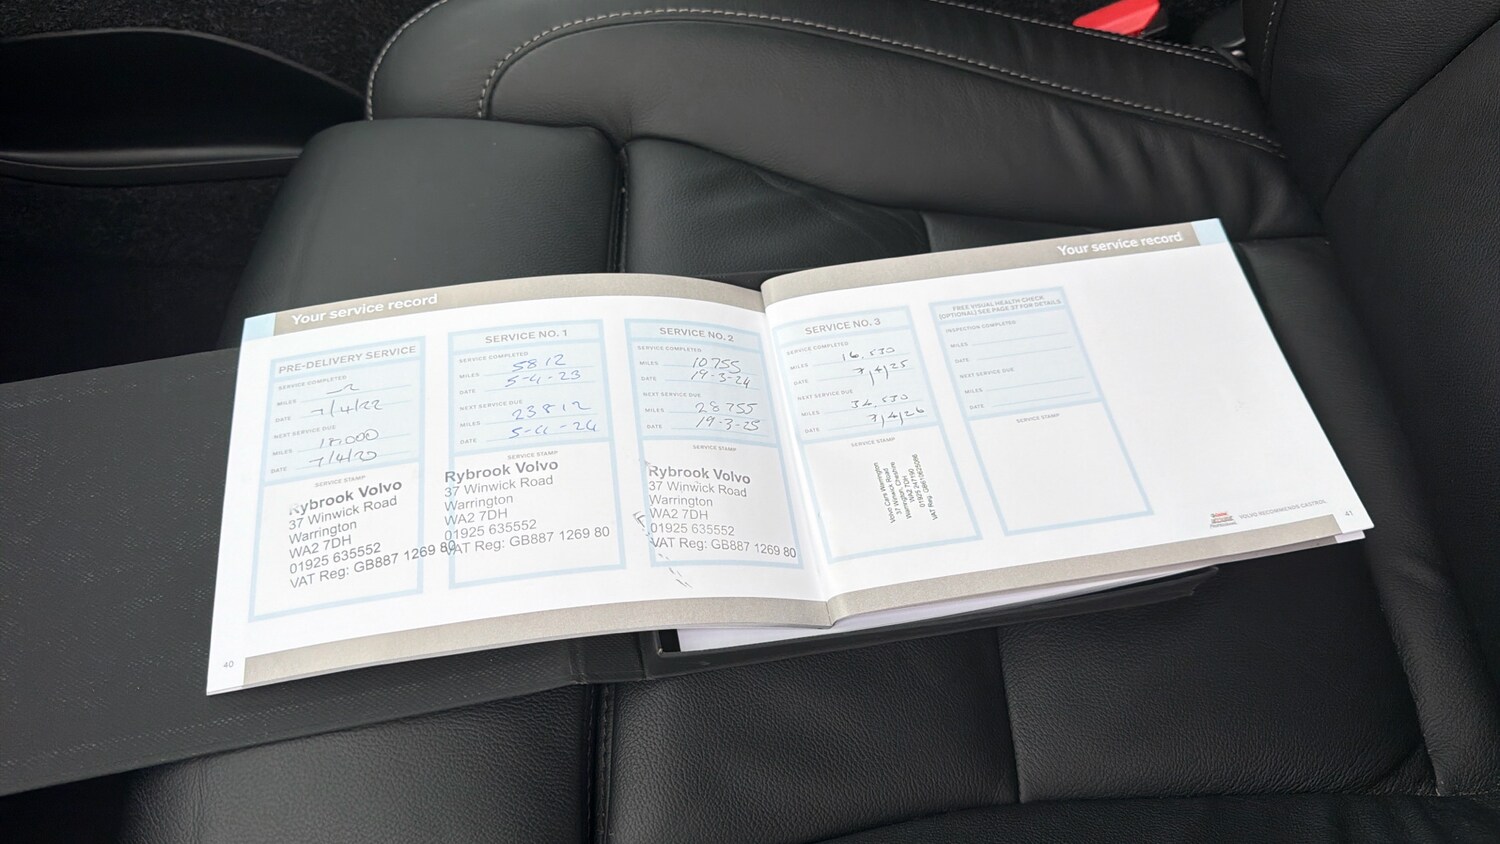 Your service record
PRE-DELIVERY SERVICE
SERVICE COMPLETED
MILES
DATE 7/4/22
NEXT SERVICE DUE
MILES 18,000
DATE
SERVICE STAMP
Rybrook Volvo
37 Winwick Road
Warrington
WA2 7DH
01925 635552
VAT Reg: GB887 1269 80
SERVICE NO. 1
SERVICE COMPLETED
MILES 5812
DATE 5-4-23
NEXT SERVICE DUE
MILES 23812
DATE 5-4-24
SERVICE STAMP
Rybrook Volvo
37 Winwick Road
Warrington
WA2 7DH
01925 635552
VAT Reg: GB887 1269 80
SERVICE NO. 2
SERVICE COMPLETED
MILES 10755
DATE 19-3-24
NEXT SERVICE DUE
MILES 28755
DATE 19-3-25
SERVICE STAMP
Rybrook Volvo
37 Winwick Road
Warrington
WA2 7DH
01925 635552
VAT Reg: GB887 1269 80
40
Your service record
SERVICE NO. 3
SERVICE COMPLETED
MILES 16,530
DATE 7/4/25
NEXT SERVICE DUE
MILES 34,530
DATE 7/4/26
SERVICE STAMP
Volvo Cars Warrington
37 Winwick Road
Warrington, Cheshire
WA2 7DH
VAT Reg
FREE VISUAL HEALTH CHECK
(OPTIONAL) SEE PAGE 37 FOR DETAILS
INSPECTION COMPLETED
MILES
DATE
NEXT SERVICE DUE
MILES
DATE
SERVICE STAMP
VOLVO RECOMMENDS CASTROL
41